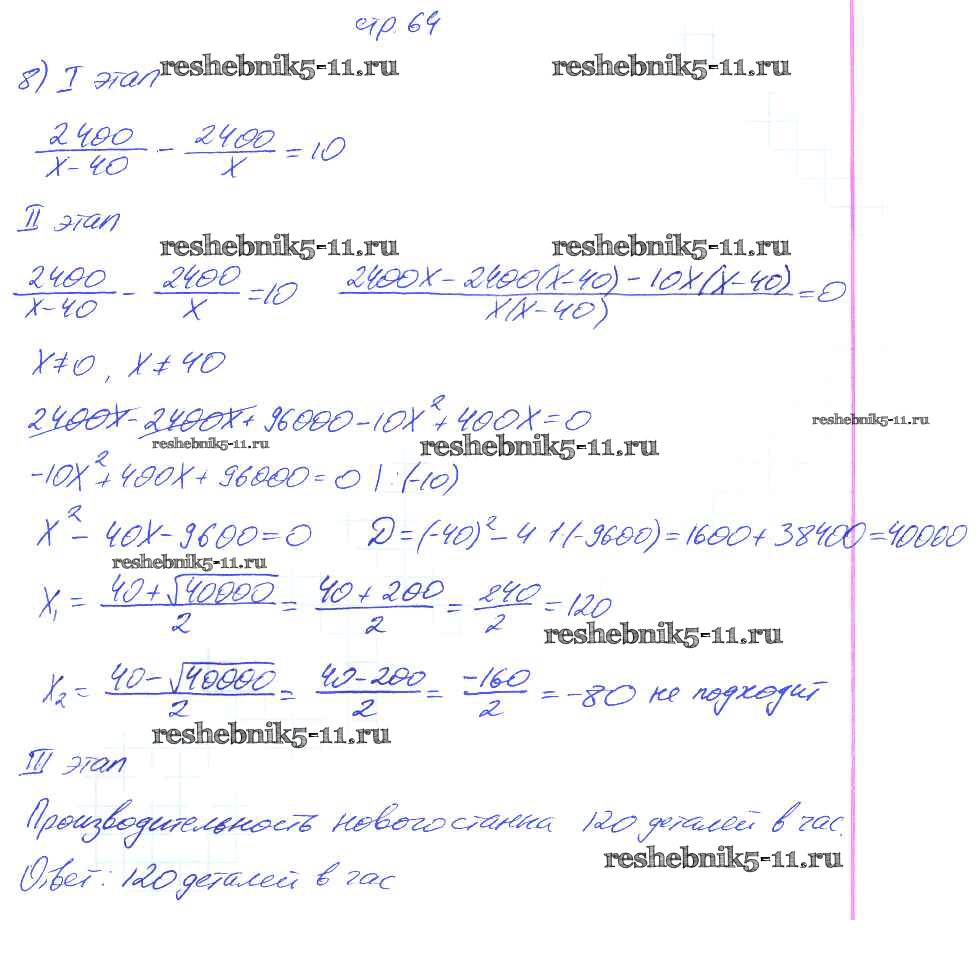 стр. 64
reshebnik5-11.ru reshebnik5-11.ru
8) I этап
2400/(x-40) - 2400/x = 10
II этап
reshebnik5-11.ru reshebnik5-11.ru
2400/(x-40) - 2400/x = 10 (2400x - 2400(x-40) - 10x(x-40))/(x(x-40)) = 0
x≠0, x≠40
2400x - 2400x + 96000 - 10x² + 400x = 0
reshebnik5-11.ru reshebnik5-11.ru reshebnik5-11.ru
-10x² + 400x + 96000 = 0 | :(-10)
x² - 40x - 9600 = 0 D = (-40)² - 4 1 (-9600) = 1600 + 38400 = 40000
reshebnik5-11.ru
x₁ = (40+√40000)/2 = (40+200)/2 = 240/2 = 120
reshebnik5-11.ru
x₂ = (40-√40000)/2 = (40-200)/2 = -160/2 = -80 не подходит
reshebnik5-11.ru
III этап
Производительность нового станка 120 деталей в час.
reshebnik5-11.ru
Ответ: 120 деталей в час